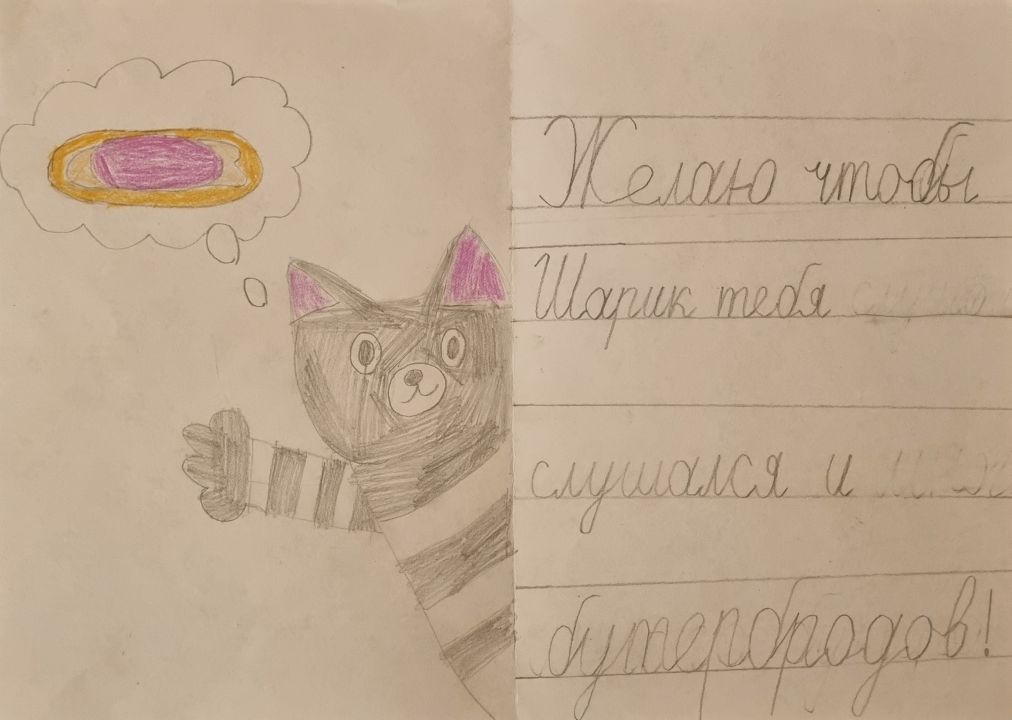 Желаю чтобы
Шарик тебя
слушался и
бутербродов!